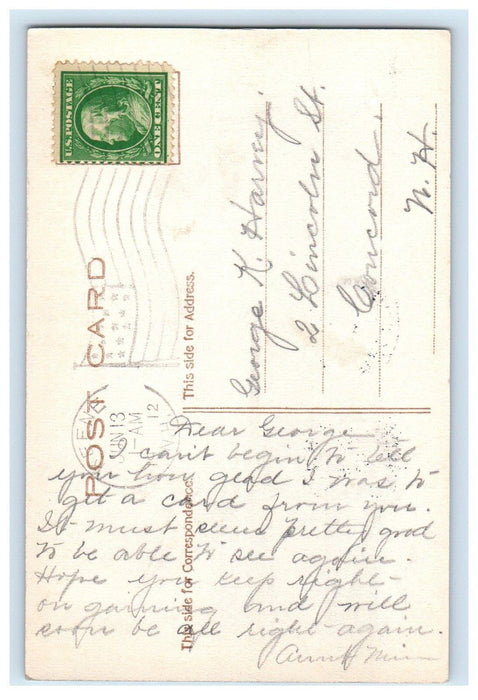 U.S. POSTAGE
ONE CENT
POST CARD
This side for Address.
This side for Correspondence.
JUN 13
AM
12
George K. Harvey
2 Lincoln St.
Concord,
N. H.
Dear George
I can't begin to tell
you how glad I was to
get a card from you.
It must seem pretty good
to be able to see again.
Hope you keep right
on gaining and will
soon be all right again.